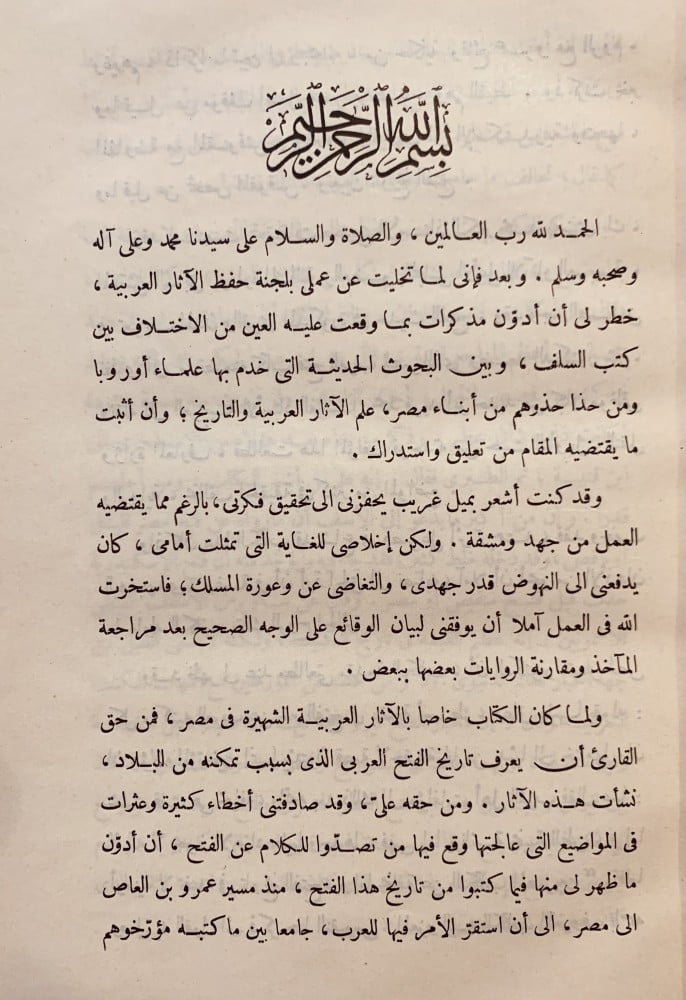 بسم الله الرحمن الرحيم
الحمد لله رب العالمين ، والصلاة والسلام على سيدنا محمد وعلى آله
وصحبه وسلم . وبعد فإنى لما تخليت عن عملى بلجنة حفظ الآثار العربية ،
خطر لى أن أدوّن مذكرات بما وقعت عليه العين من الاختلاف بين
كتب السلف ، وبين البحوث الحديثة التى خدم بها علماء أوروبا
ومن حذا حذوهم من أبناء مصر، علم الآثار العربية والتاريخ ؛ وأن أثبت
ما يقتضيه المقام من تعليق واستدراك .
وقد كنت أشعر بميل غريب يحفزنى الى تحقيق فكرتى، بالرغم مما يقتضيه
العمل من جهد ومشقة . ولكن إخلاصى للغاية التى تمثلت أمامى ، كان
يدفعنى الى النهوض قدر جهدى، والتغاضى عن وعورة المسلك؛ فاستخرت
الله فى العمل آملا أن يوفقنى لبيان الوقائع على الوجه الصحيح بعد مراجعة
المآخذ ومقارنة الروايات بعضها ببعض .
ولما كان الكتاب خاصا بالآثار العربية الشهيرة فى مصر ، فمن حق
القارئ أن يعرف تاريخ الفتح العربى الذى بسبب تمكنه من البلاد ،
نشأت هذه الآثار . ومن حقه علىّ، وقد صادفتنى أخطاء كثيرة وعثرات
فى المواضيع التى عالجتها وقع فيها من تصدّوا للكلام عن الفتح ، أن أدوّن
ما ظهر لى منها فيما كتبوا من تاريخ هذا الفتح ، منذ مسير عمرو بن العاص
الى مصر، الى أن استقرّ الأمر فيها للعرب، جامعا بين ما كتبه مؤرّخوهم